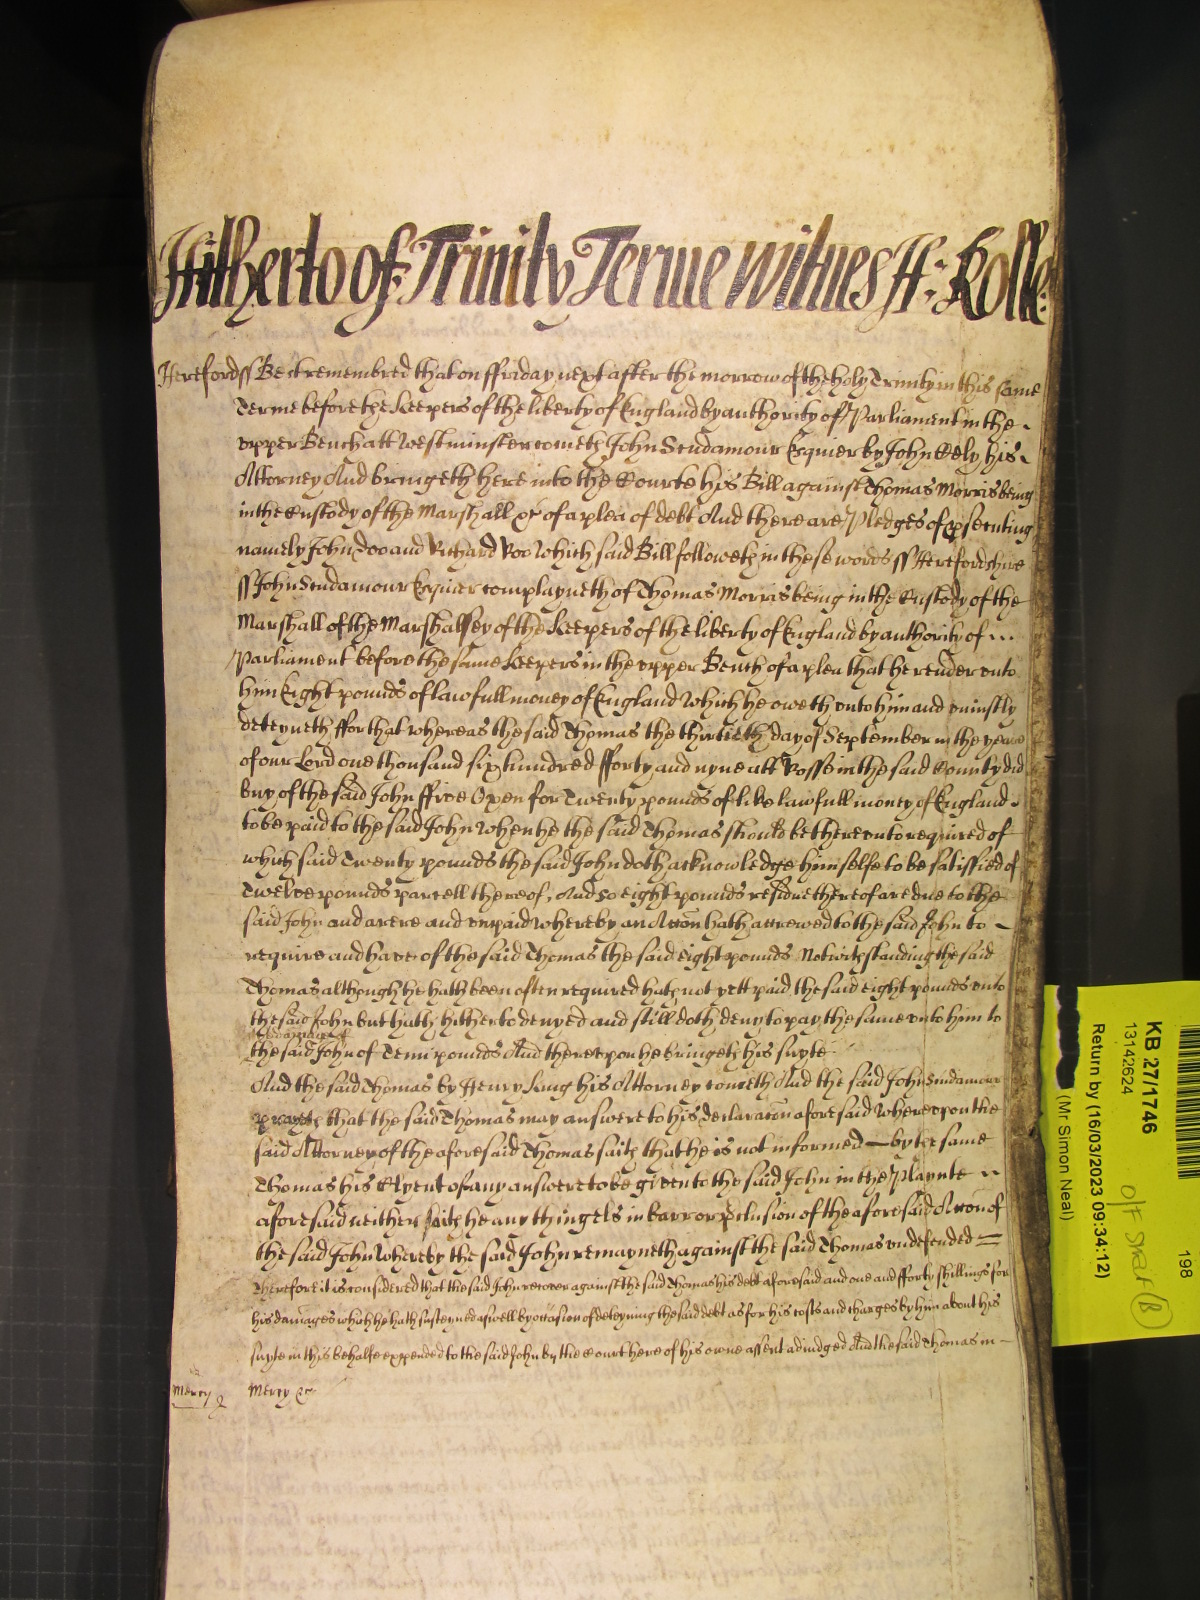 Hitherto of Trinity Terme Witnes H: Rolle:
Herefordss Be it remembred that on ffriday next after the morrow of the holy Trinity in this same
Terme before the Keepers of the liberty of England by authority of Parliament in the
vpper Bench att Westminster cometh John Scudamour Esquier by John Seely his
Attorney And bringeth here into the Courte his Bill against Thomas Morris being
in the Custody of the Marshall &c of a plea of debt And there are Pledges of psecuting
namely John Doo and Richard Roo Which said Bill followeth in these words ss Herefordshire
ss John Scudamour Esquier complayneth of Thomas Morris being in the Custody of the
Marshall of the Marshalsey of the Keepers of the liberty of England by authority of
Parliament before the same Keepers in the vpper Bench of a plea that he render vnto
him Eight pounds of lawfull money of England Which he oweth vnto him and vniustly
deteyneth ffor that whereas the said Thomas the thirtieth day of September in the yeare
of our Lord one thousand six hundred fforty and nyne att Rosse in the said County did
buy of the said John ffive Oxen for Twenty pounds of like lawfull money of England
to be paid to the said John When he the said Thomas should be therevnto required of
which said Twenty pounds the said John doth acknowledge himselfe to be satisfied of
Twelve pounds parcell thereof, And so eight pounds residue thereof are due to the
said John and arere and vnpaid whereby an Accon hath accrewed to the said John to
require and have of the said Thomas the said eight pounds Notwithstanding the said
Thomas although he hath been often required hath not yett paid the said eight pounds vnto
the said John but hath hitherto denyed and still doth deny to pay the same vnto him to
the damage of
the said John of Tenn pounds And therevpon he bringeth his suyte
And the said Thomas by Henry King his Attorney cometh And the said John Scudamour
prayeth that the said Thomas may answere to his declaracon aforesaid Wherevpon the
said Attorney of the aforesaid Thomas saith that he is not informed by the same
Thomas his Clyent of any answere to be given to the said John in the Playnte
aforesaid neither saith he any thing els in barr or pclusion of the aforesaid Accon of
the said John Whereby the said John remayneth against the said Thomas vndefended
Therefore it is considered that the said John recover against the said Thomas his debt aforesaid and one and fforty shillings for
his damages which he hath susteyned aswell by occasion of deteyning the said debt as for his costs and charges by him about his
suyte in this behalfe expended to the said John by the Court here of his owne assent adiudged And the said Thomas in
Mercy
Mercy &c
KB 27/1746
13142624
198
Return by (16/03/2023 09:34:12)
(Mr. Simon Neal)